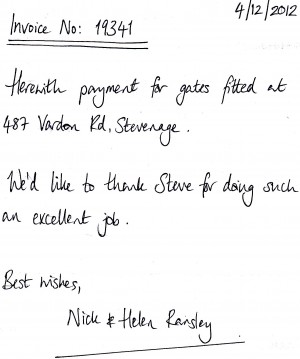 4/12/2012
Invoice No: 19341
Herewith payment for gates fitted at
487 Vardon Rd, Stevenage.
We'd like to thank Steve for doing such
an excellent job.
Best wishes,
Nick & Helen Ransley